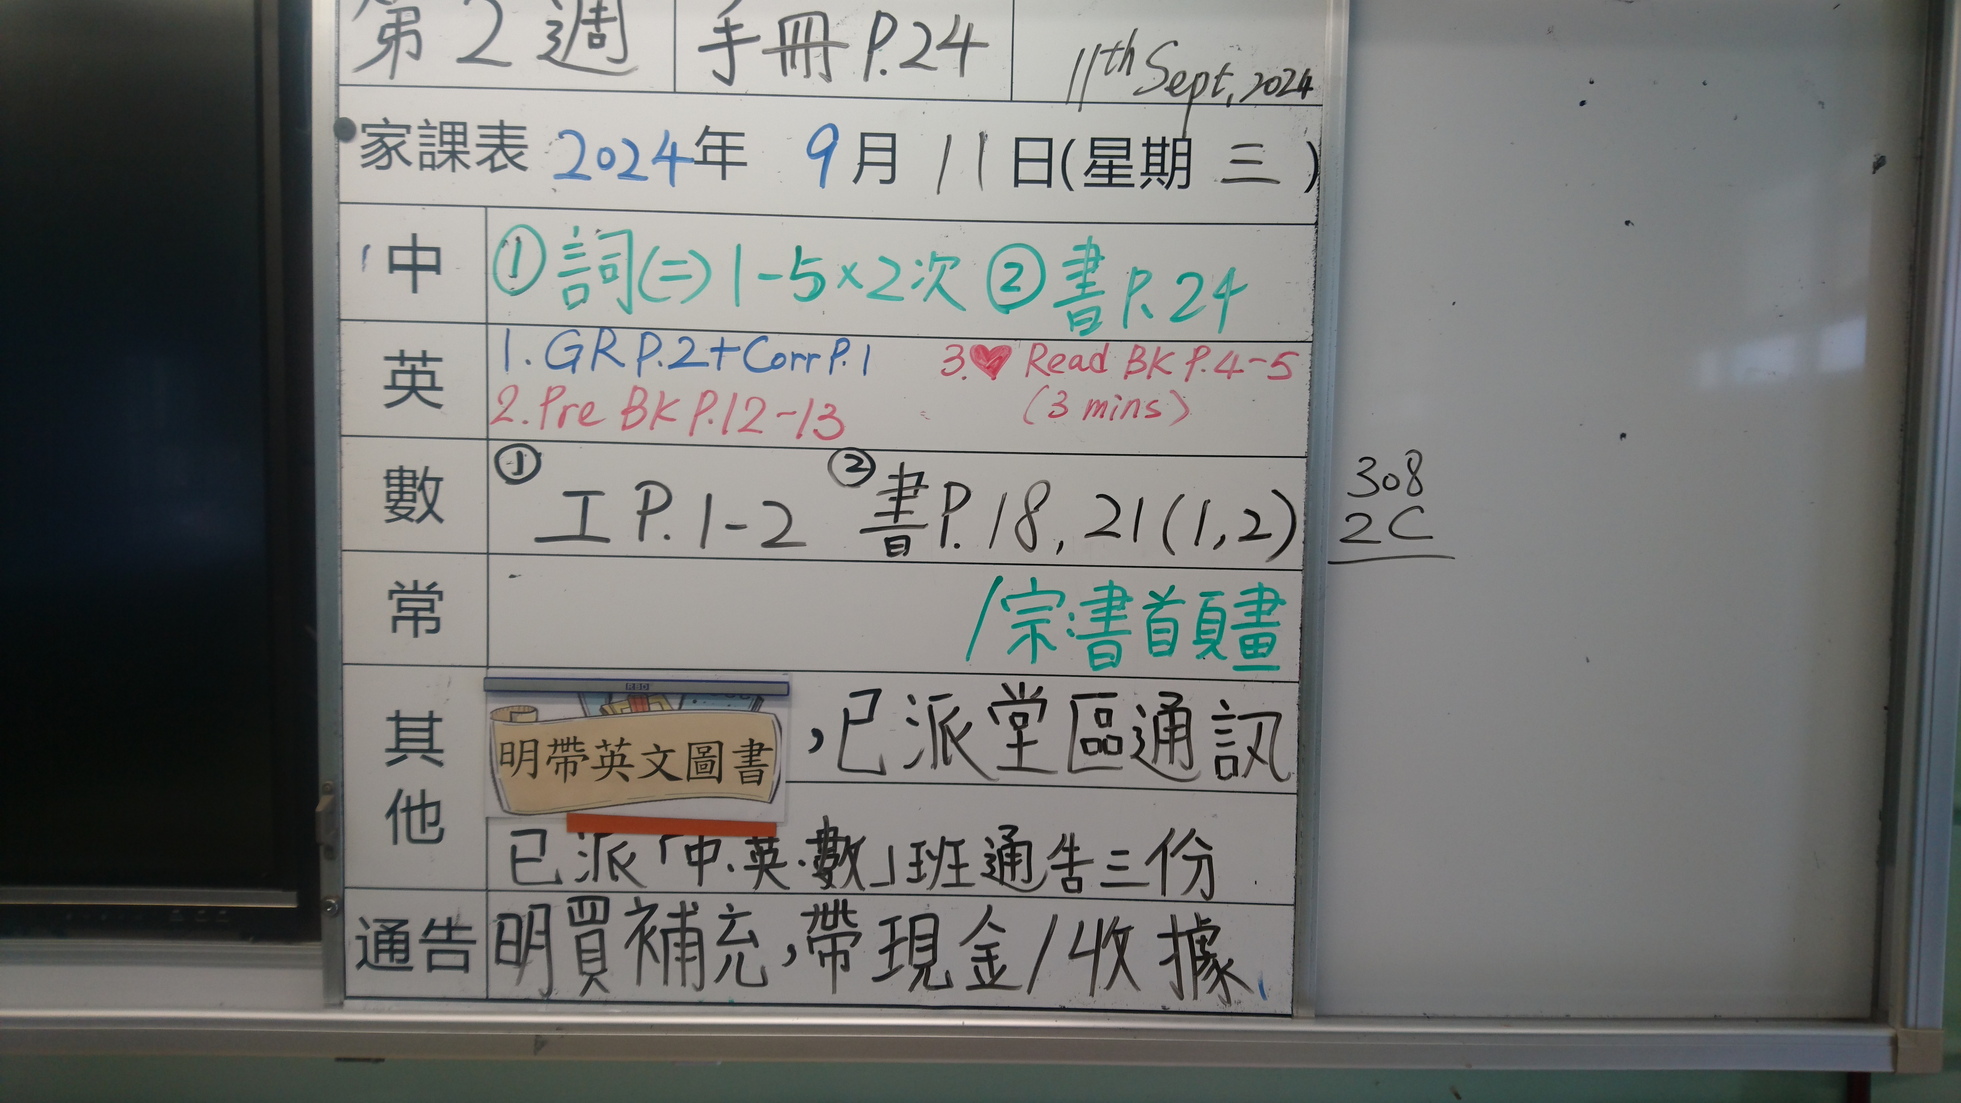 第2週 手冊 P.24 11th Sept, 2024
家課表 2024年 9月 11日(星期 三 )
中 ①詞(二) 1-5×2次 ②書P.24
英 1. GR P.2+Corr P.1 3.♥ Read BK P.4-5
2. Pre BK P.12-13 (3 mins)
數 ① 工 P.1-2 ② 書P.18, 21(1,2)
308
2C
常 /宗:書首頁畫
其他 明帶英文圖書 ,已派堂區通訊
已派「中.英.數」班通告三份
通告 明買補充,帶現金/收據